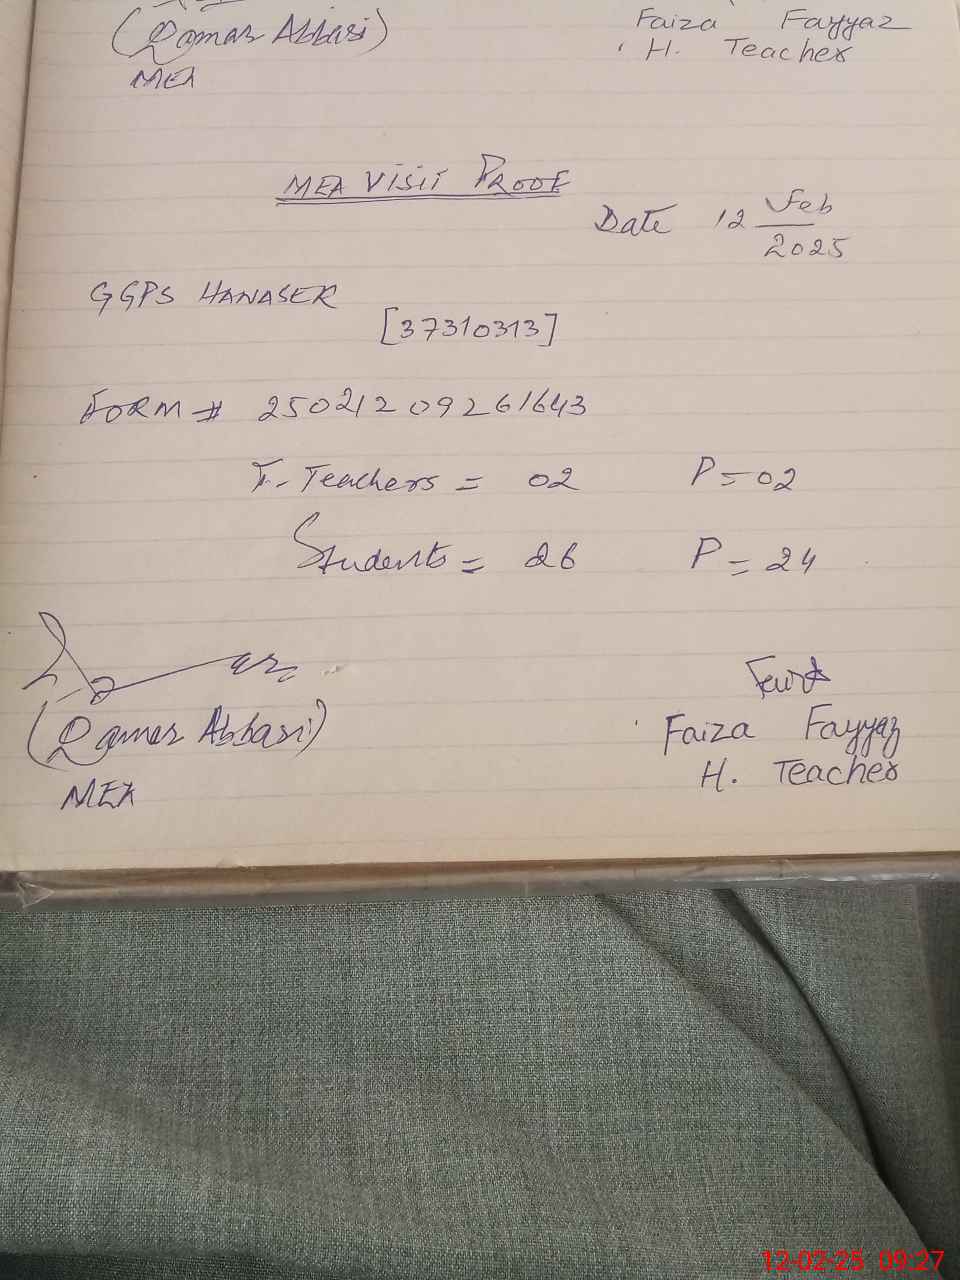 (Qamar Abbasi)
MEA
Faiza Fayyaz
H. Teacher
MEA VISIT PROOF
Date 12 Feb
2025
GGPS HANASER
[37310313]
FORM # 25021209261643
T. Teachers = 02 P = 02
Students = 26 P = 24
(Qamar Abbasi)
MEA
Faiza Fayyaz
H. Teacher
12-02-25 09:27